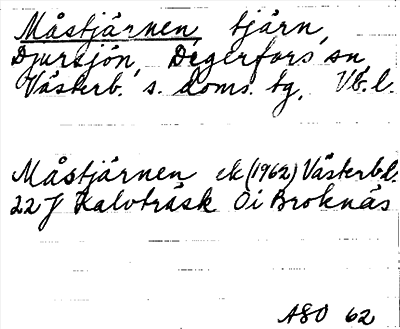 Måstjärnen, tjärn,
Djursjön, Degerfors sn,
Västerb. s. doms. tg, Vb. l.
Måstjärnen ek (1962) Västerb. l.
22 J Kalvträsk Öi Broknäs
ASO 62